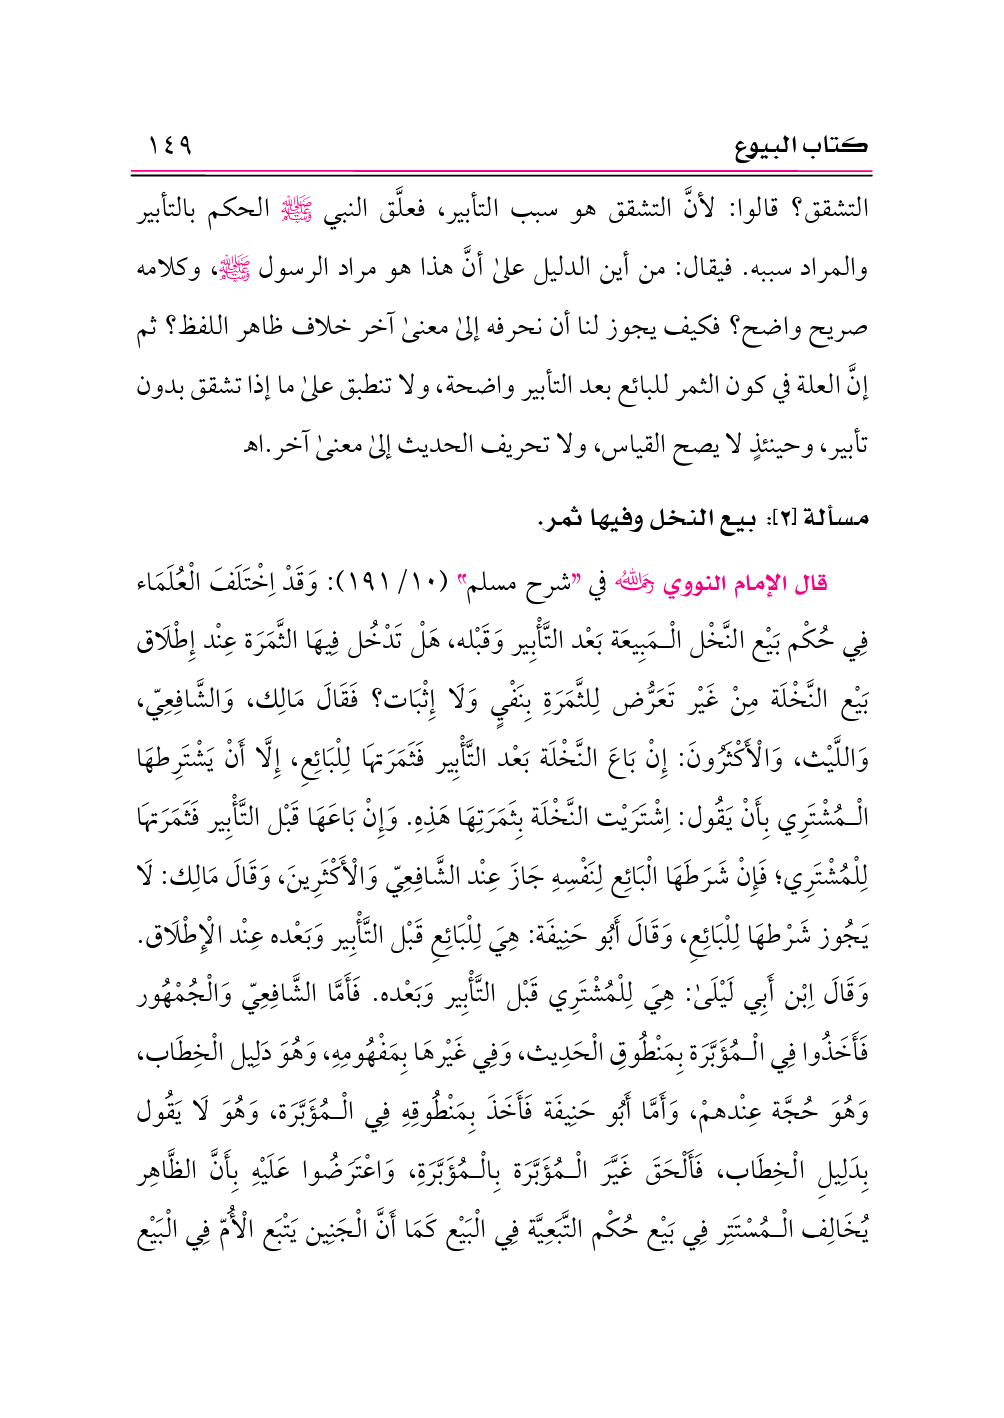 كتاب البيوع ١٤٩
التشقق؟ قالوا: لأنَّ التشقق هو سبب التأبير، فعلَّق النبي ﷺ الحكم بالتأبير
والمراد سببه. فيقال: من أين الدليل علىٰ أنَّ هذا هو مراد الرسول ﷺ، وكلامه
صريح واضح؟ فكيف يجوز لنا أن نحرفه إلىٰ معنىٰ آخر خلاف ظاهر اللفظ؟ ثم
إنَّ العلة في كون الثمر للبائع بعد التأبير واضحة، ولا تنطبق علىٰ ما إذا تشقق بدون
تأبير، وحينئذٍ لا يصح القياس، ولا تحريف الحديث إلىٰ معنىٰ آخر.اهـ
مسألة [٢]: بيع النخل وفيها ثمر.
قال الإمام النووي رحمه الله في ”شرح مسلم“ (١٠/ ١٩١): وَقَدْ اِخْتَلَفَ الْعُلَمَاء
فِي حُكْم بَيْع النَّخْل الْـمَبِيعَة بَعْد التَّأْبِير وَقَبْله، هَلْ تَدْخُل فِيهَا الثَّمَرَة عِنْد إِطْلَاق
بَيْع النَّخْلَة مِنْ غَيْر تَعَرُّض لِلثَّمَرَةِ بِنَفْيٍ وَلَا إِثْبَات؟ فَقَالَ مَالِك، وَالشَّافِعِيّ،
وَاللَّيْث، وَالْأَكْثَرُونَ: إِنْ بَاعَ النَّخْلَة بَعْد التَّأْبِير فَثَمَرَتهَا لِلْبَائِعِ، إِلَّا أَنْ يَشْتَرِطهَا
الْـمُشْتَرِي بِأَنْ يَقُول: اِشْتَرَيْت النَّخْلَة بِثَمَرَتِهَا هَذِهِ. وَإِنْ بَاعَهَا قَبْل التَّأْبِير فَثَمَرَتهَا
لِلْمُشْتَرِي؛ فَإِنْ شَرَطَهَا الْبَائِع لِنَفْسِهِ جَازَ عِنْد الشَّافِعِيّ وَالْأَكْثَرِينَ، وَقَالَ مَالِك: لَا
يَجُوز شَرْطهَا لِلْبَائِعِ، وَقَالَ أَبُو حَنِيفَة: هِيَ لِلْبَائِعِ قَبْل التَّأْبِير وَبَعْده عِنْد الْإِطْلَاق.
وَقَالَ اِبْن أَبِي لَيْلَىٰ: هِيَ لِلْمُشْتَرِي قَبْل التَّأْبِير وَبَعْده. فَأَمَّا الشَّافِعِيّ وَالْجُمْهُور
فَأَخَذُوا فِي الْـمُؤَبَّرَة بِمَنْطُوقِ الْحَدِيث، وَفِي غَيْرهَا بِمَفْهُومِهِ، وَهُوَ دَلِيل الْخِطَاب،
وَهُوَ حُجَّة عِنْدهمْ، وَأَمَّا أَبُو حَنِيفَة فَأَخَذَ بِمَنْطُوقِهِ فِي الْـمُؤَبَّرَة، وَهُوَ لَا يَقُول
بِدَلِيلِ الْخِطَاب، فَأَلْحَقَ غَيَّرَ الْـمُؤَبَّرَة بِالْـمُؤَبَّرَةِ، وَاعْتَرَضُوا عَلَيْهِ بِأَنَّ الظَّاهِر
يُخَالِف الْـمُسْتَتِر فِي بَيْع حُكْم التَّبَعِيَّة فِي الْبَيْع كَمَا أَنَّ الْجَنِين يَتْبَع الْأُمّ فِي الْبَيْع